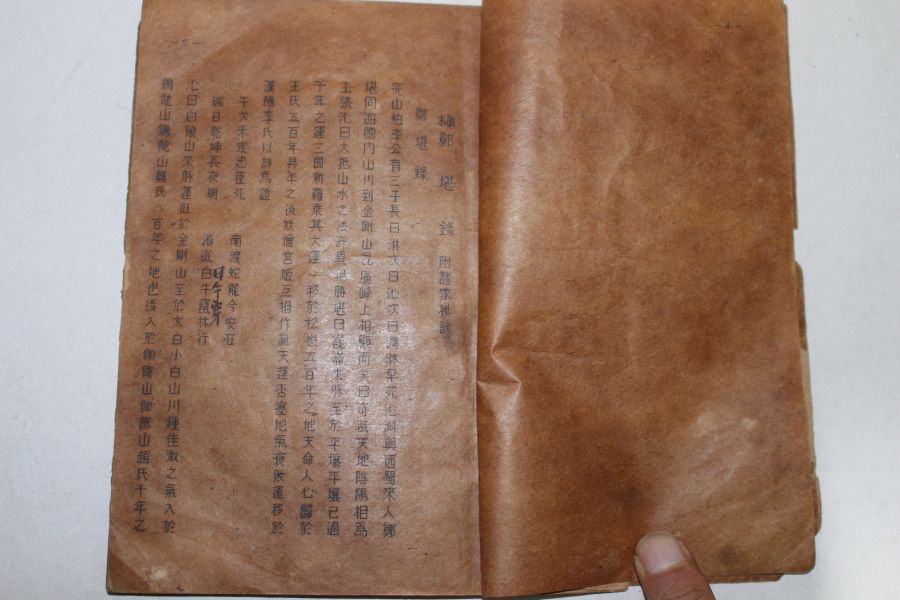 -4-
鄭堪錄 附諸家秘訣
鄭堪錄
完山伯李公有三子長曰淋次曰沁次曰淵淋早死沁淵與西蜀來人鄭
堪同遊國內山川到金剛山毘盧峰上相顧而笑曰奇哉天地陰陽相爲
主張沁曰大抵山水之法亦異絕勝堪曰崑崙來脉至於平壤平壤已過
千年之運三國新羅乘其大運、移於松岳五百年之地天命人心歸於
王氏五百年昇年之後妖僧宮姬互相作亂天運否塞地氣衰敗運移於
漢陽李氏以詩爲證
干戈未定忠臣死 南渡蛇龍今安在
瑞日乾坤長夜明 須從白牛 林行
沁曰白頭山來脉運旺於金剛山至於太白小白山川鍾佳淑之氣入於
鷄龍山鷄龍山鄭氏八百年之地也後入於伽倻山伽倻山趙氏千年之
-5-